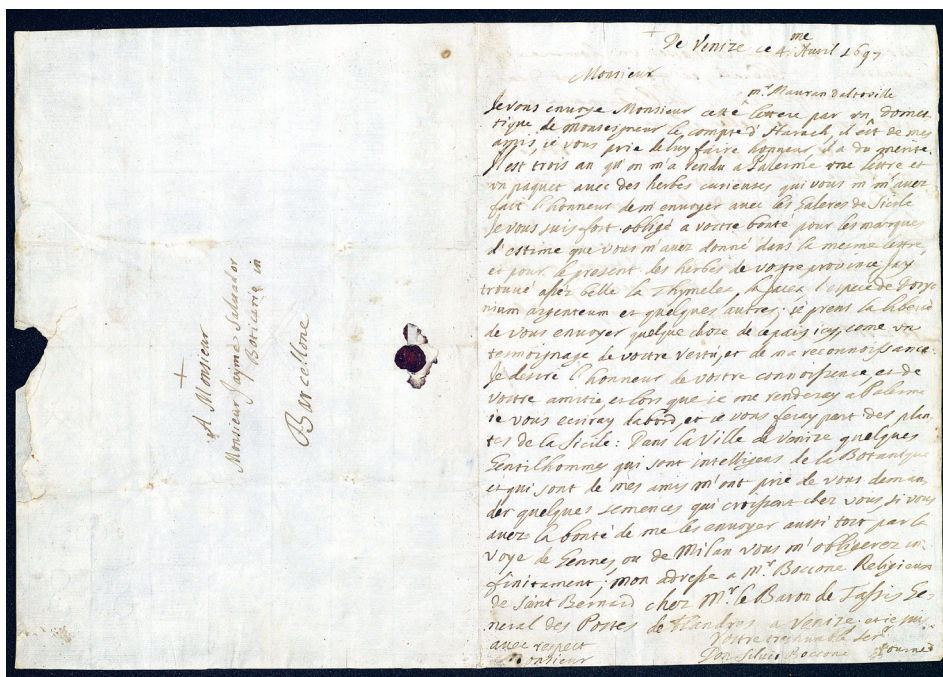 A Monsieur
Monsieur Jayme Salvador
Boticario in
Barcellone
De Venize ce 4.me Avril 1697
Monsieur
mr. Mauran daltoville
Je vous envoye Monsieur cette lettere par vn domes
tique de monseigneur le compte d'Harach, il ést de mes
amis, je vous prie le luy faire honneur, il a du merite.
Il est trois an qu'on m'a rendu a Palerme vne lettre et
vn paquet avec des herbes curieuses qui vous m m'avez
fait l'honneur de m'envoyer avec les Galeres de Sicile
Je vous suis fort obligé a vostre bonté pour les marques
d'estime que vous m'avez donné dans la mesme lettre
et pour le present les herbes de vostre province, J'ay
trouvé assez belle la Thymelea, la Jacea, l'espece de Dory
nium argenteum et quelques autres; ie prens la liberté
de vous envoyer quelque choze de ce païs icy, come vn
tesmoignage de vostre vertu, et de ma reconnoissance.
Je desire l'honneur de vostre connoissence, et de
vostre amitié et lors que ie me renderay a Palerme
ie vous ecriray dabord, et ie vous feray part des plan
tes de la Sicile: Dans la Ville de Venize quelques
Gentilhommes qui sont intelligens de la Botanique
et qui sont de mes amis m'ont prié de vous deman
der quelques semences qui croissent chez vous, si vous
avez la bonté de me les envoyer aussi tost par la
voye de Gennes, ou de Milan vous m'obligerez in
finitament; mon adresse a Mr. Boccone Religieux
de Saint Bernard chez Mr. le Baron de Tassis Ge
neral des Postes de Flandres a Venize. et ie suis
avec respect
Monsieur
Vostre treshumble Ser
Don Silvio Boccone